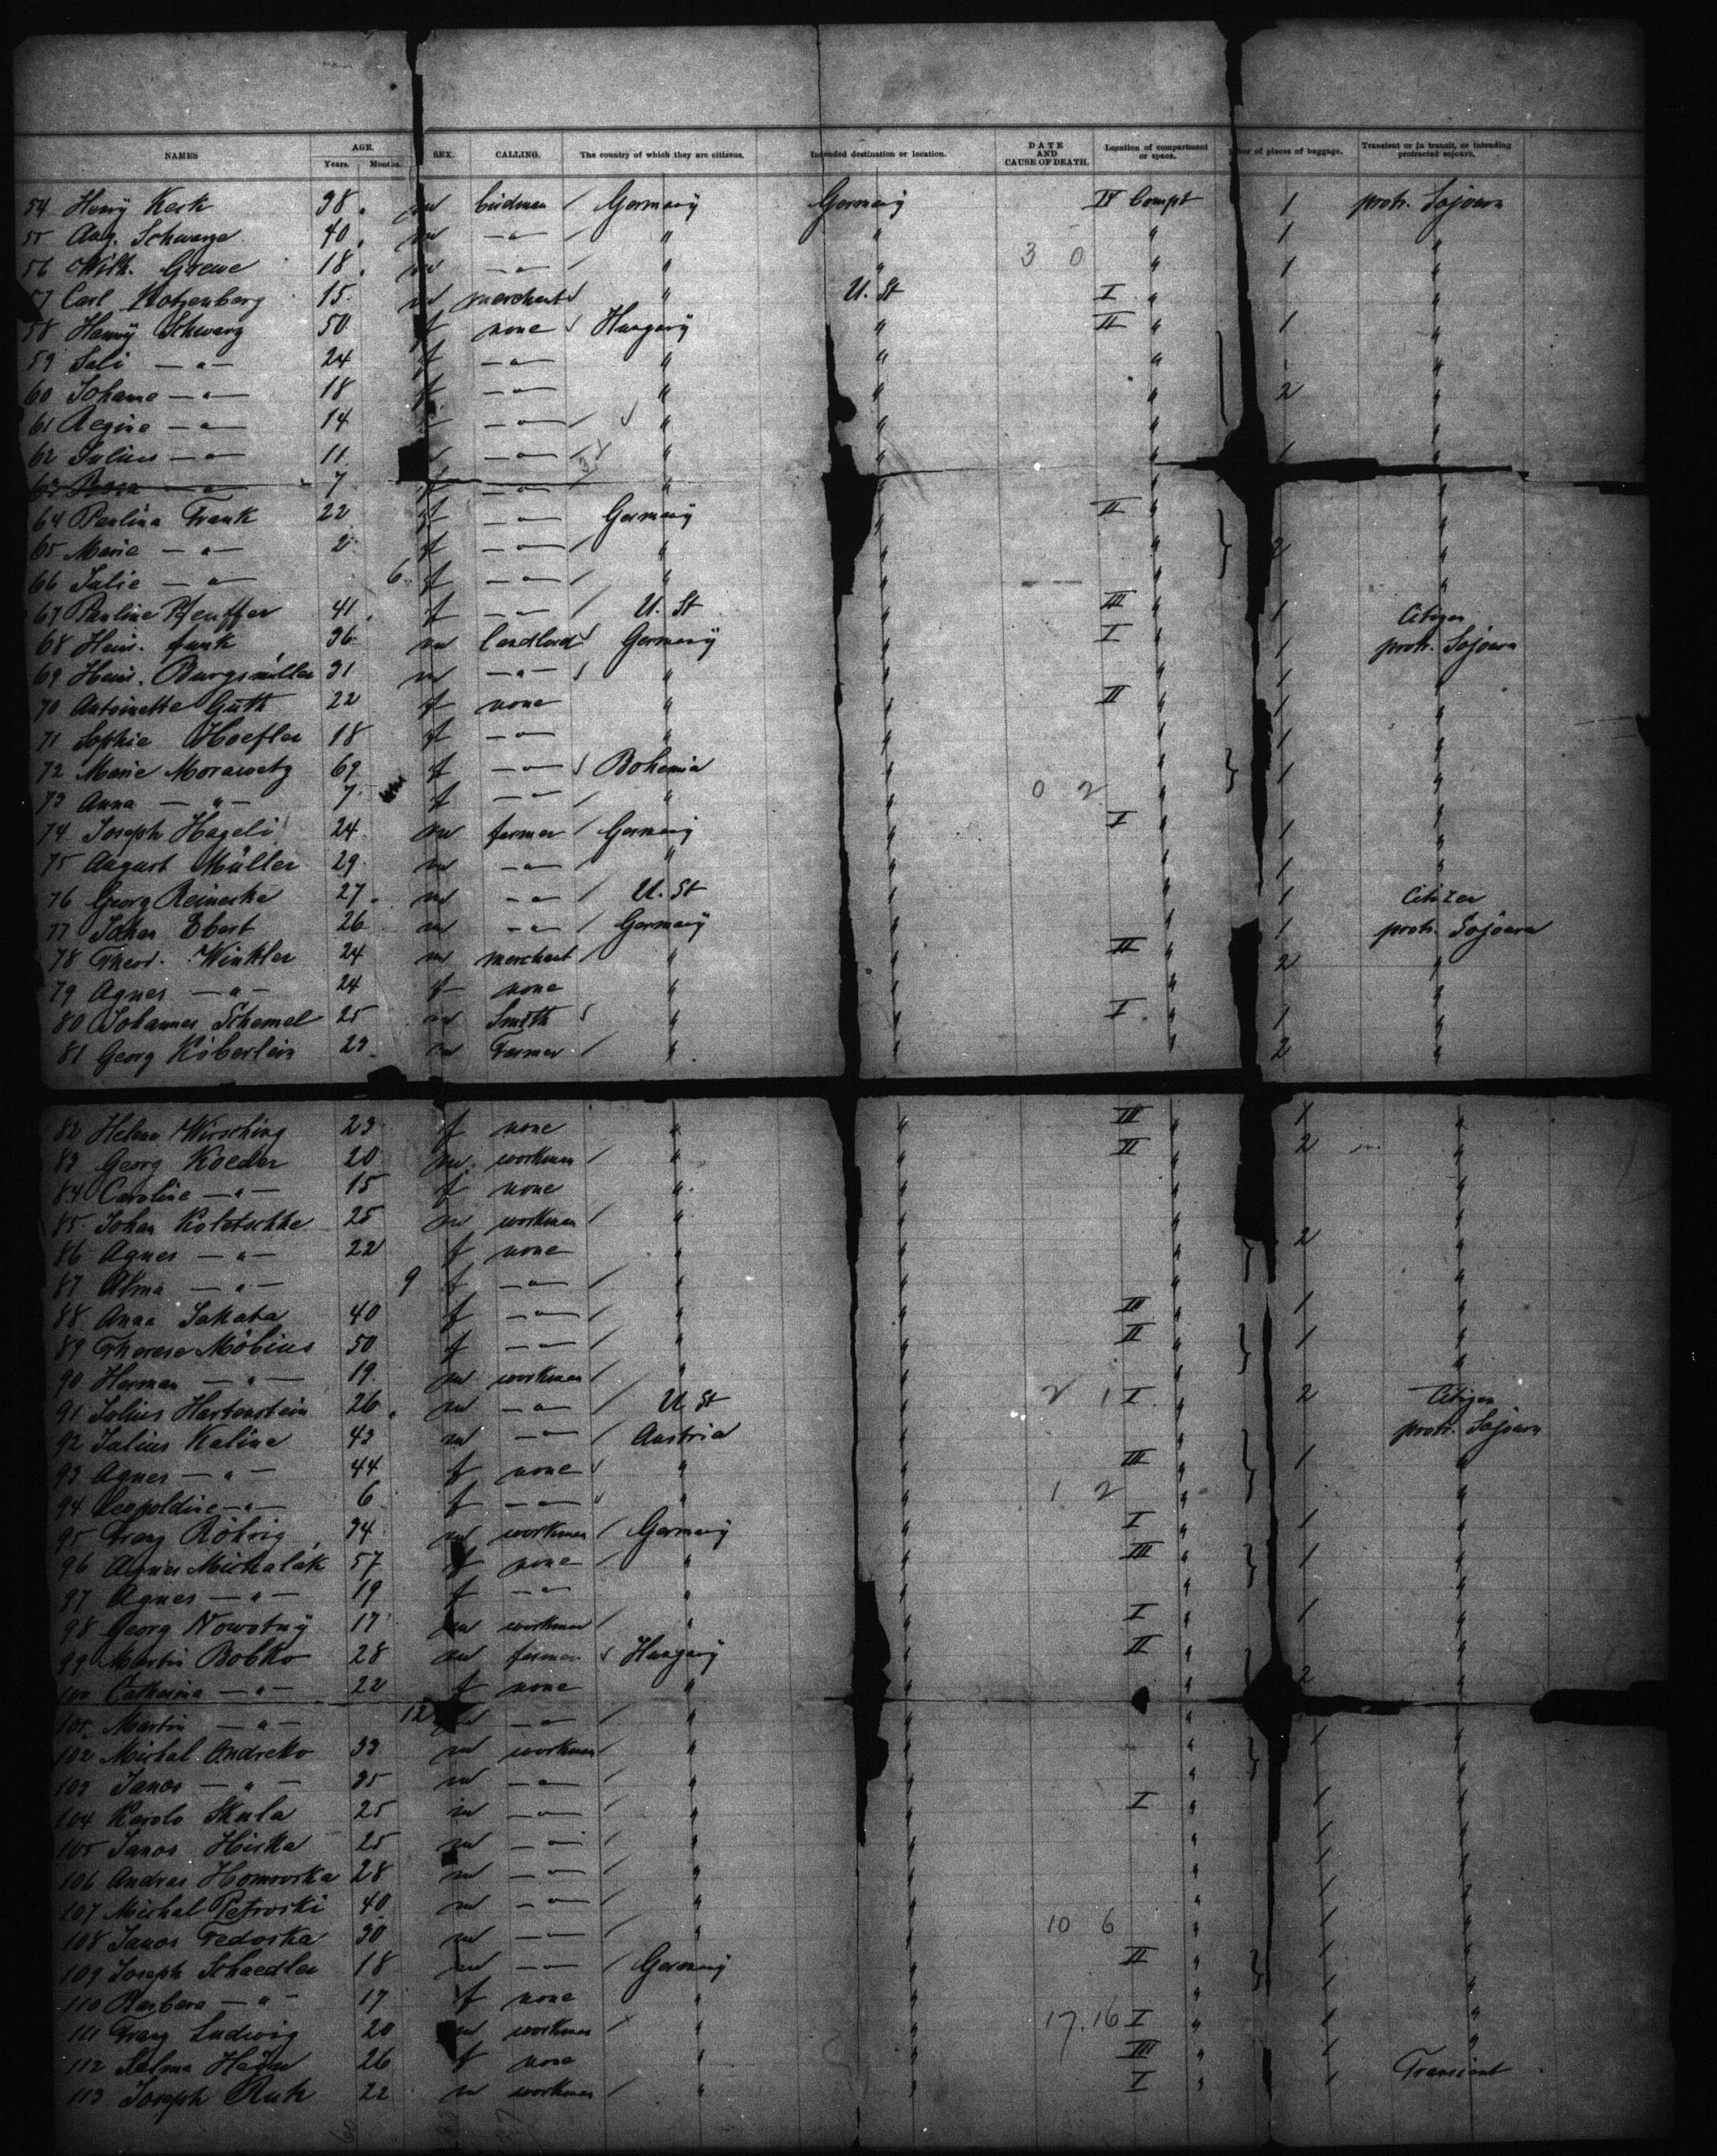 NAMES AGE. Years. Months. SEX. CALLING. The country of which they are citizens. Intended destination or location. DATE AND CAUSE OF DEATH. Location of compartment or space. Number of pieces of baggage. Transient or in transit, or intending protracted sojourn.
54 Henry Keck 38 m birdman Germany Germany IV Compt 1 protr. Sojourn
55 Aug. Schwarze 40 m —"— " " " 1 "
56 Wilh. Grewe 18 m —"— " " 3 0 " 1 "
57 Carl Kotzenberg 15 m merchant " U. St I " "
58 Hanny Schwarz 50 f none Hungary " II " 1 "
59 Sali —"— 24 f —"— " " " "
60 Johanna —"— 18 f —"— " " " 2 "
61 Regine —"— 14 —"— " " " "
62 Julius —"— 11 —"— " " " 1 "
63 Rosa —"— 7 f —"— " " "
64 Paulina Frank 22 f —"— Germany " II " "
65 Marie —"— 2 f —"— " " " 2 "
66 Julie —"— 6 f —"— " " " "
67 Pauline Pfeuffer 41 f —"— U. St " III " 1 Citizen
68 Heinr. Funk 36 m landlord Germany " I " 1 protr. Sojourn
69 Heinr. Burgsmüller 31 m —"— " " " 1 "
70 Antoinette Güth 22 f none " " II " 1 "
71 Sophie Hoefler 18 f —"— " " " 1 "
72 Marie Morawetz 69 f —"— Bohemia " " 1 "
73 Anna —"— 7 f —"— " " 0 2 " "
74 Joseph Hageli 24 m farmer Germany " I " 1 "
75 August Müller 29 m —"— " " " 1 "
76 Georg Reinecke 27 m —"— U. St " " 1 Citizen
77 Johan Ebert 26 m —"— Germany " " 1 protr. Sojourn
78 Theod. Winkler 24 m merchant " " II " 2 "
79 Agnes —"— 24 f none " " " "
80 Johannes Schemel 25 m Smith " " I " 1 "
81 Georg Köberlein 23 m Farmer " " " 2 "
82 Helene Wirsching 23 f none " " III " 1 "
83 Georg Koeder 20 m workman " " II " 2 "
84 Caroline —"— 15 f none " " " "
85 Johan Koletschke 25 m workman " " " "
86 Agnes —"— 22 f none " " " 2 "
87 Alma —"— 9 f —"— " " " "
88 Anna Jakata 40 f —"— " " III " 1 "
89 Therese Möbius 50 f —"— " " II " 1 "
90 Herman —"— 19 m workman " " " "
91 Julius Hartenstein 26 m —"— U. St " 2 1 I " 2 Citizen
92 Julius Kalina 43 m —"— Austria " " protr. Sojourn
93 Agnes —"— 44 f none " " III " 1 "
94 Leopoldine —"— 6 f —"— " " 1 2 " "
95 Franz Röhrig 34 m workman Germany " I " 1 "
96 Agnes Michalák 57 f none " " III " 1 "
97 Agnes —"— 19 f —"— " " " "
98 Georg Nowotny 17 m workman " " I " 1 "
99 Martin Bobko 28 m farmer Hungary " II " "
100 Catharina —"— 22 f none " " " 2 "
101 Martin —"— 12 m —"— " " " "
102 Michal Andreko 33 m workman " " " 1 "
103 Janos —"— 35 m —"— " " " "
104 Karolo Skula 25 m —"— " " I " 1 "
105 Janos Hiska 25 m —"— " " " 1 "
106 Andras Homovska 28 m —"— " " " 1 "
107 Michal Petroski 40 m —"— " " " 1 "
108 Janos Fedoska 30 m —"— " " 10 6 " 1 "
109 Joseph Schaedler 18 m —"— Germany " II " 1 "
110 Barbara —"— 17 f none " " " 1 "
111 Franz Ludwig 20 m workman " " 17.16 I " 1 "
112 Selma Hein 26 f none " " III " 1 "
113 Joseph Ruh 22 m workman " " I " 1 Transient